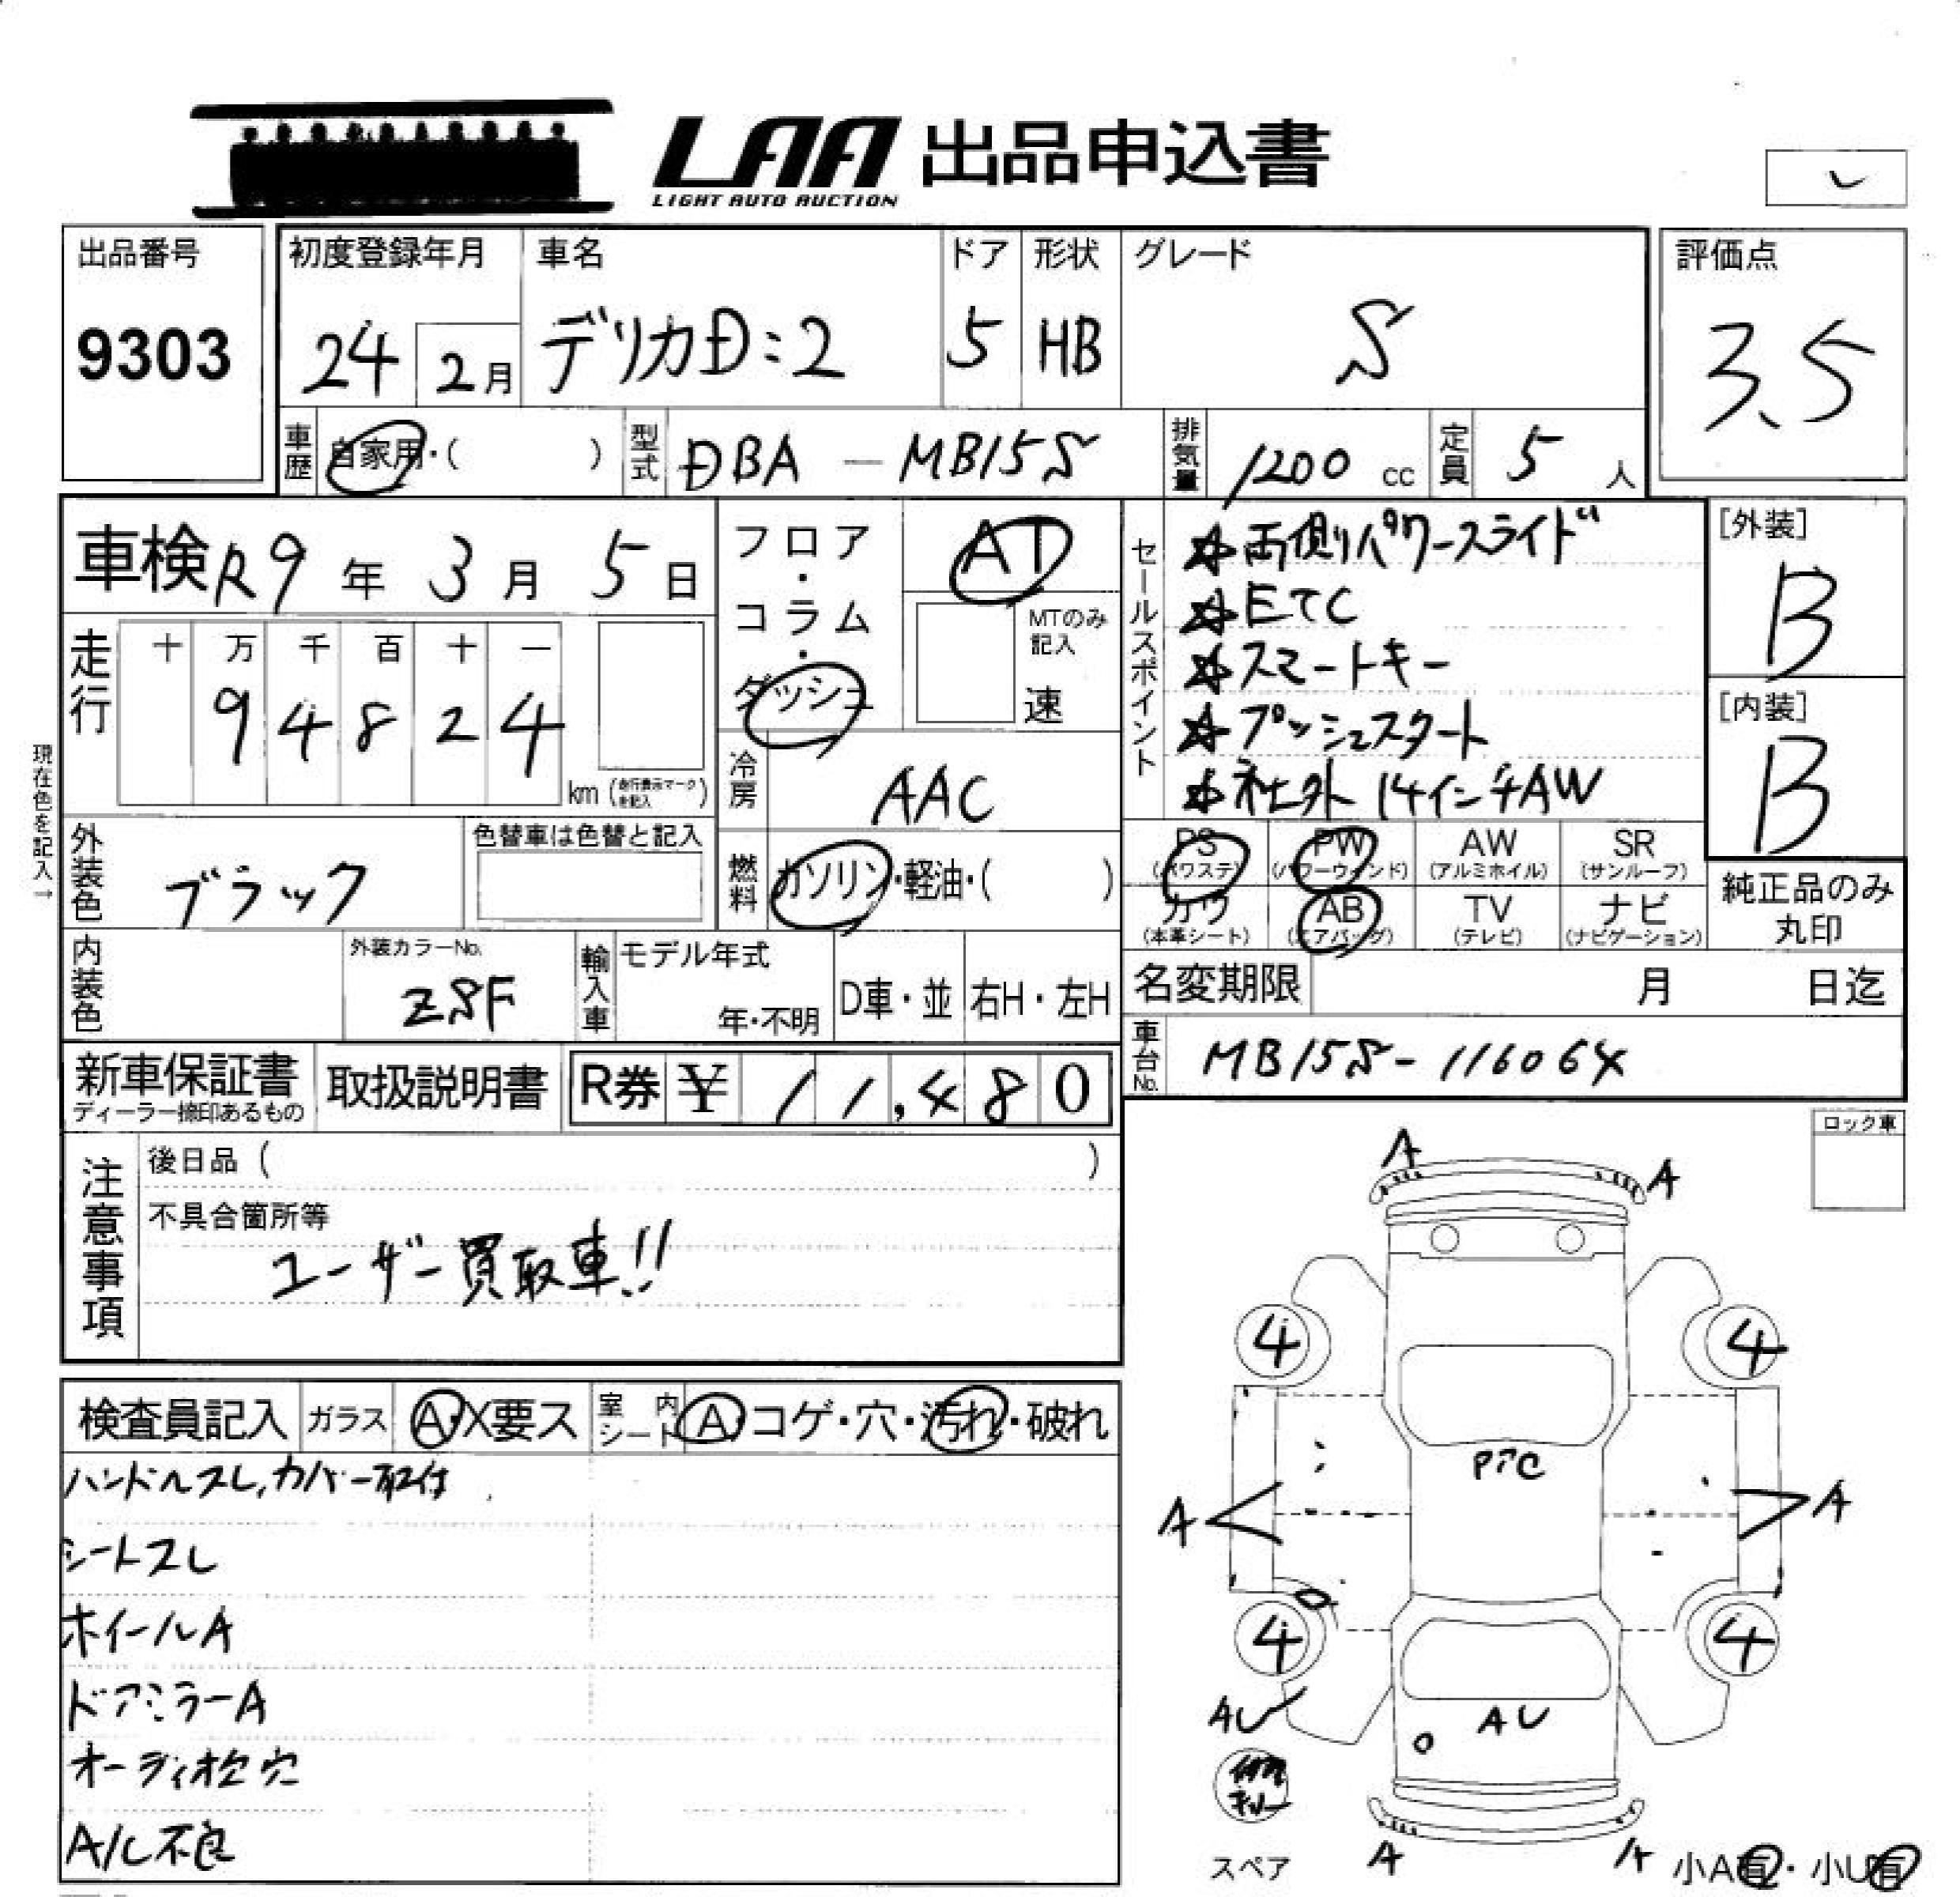 LAA 出品申込書
LIGHT AUTO AUCTION
出品番号
9303
初度登録年月
24 2月
車名
デリカD:2
ドア
5
形状
HB
グレード
S
評価点
3.5
車歴
自家用・( )
型式
DBA - MB15S
排気量
1200 cc
定員
5 人
車検 R9 年 3 月 5 日
走行
十 万 千 百 十 一
9 4 8 2 4
km (走行表示マークを記入)
現在色を記入→
外装色
ブラック
色替車は色替と記入
内装色
外装カラーNo.
ZSF
フロア・コラム・ダッシュ
AT
MTのみ記入
速
冷房
AAC
燃料
ガソリン・軽油・( )
輸入車
モデル年式
年・不明
D車・並
右H・左H
セールスポイント
☆両側パワースライド
☆ETC
☆スマートキー
☆プッシュスタート
☆社外 14インチAW
[外装]
B
[内装]
B
PS (パワステ)
PW (パワーウィンド)
AW (アルミホイル)
SR (サンルーフ)
カワ (本革シート)
AB (エアバッグ)
TV (テレビ)
ナビ (ナビゲーション)
純正品のみ丸印
名変期限 月 日迄
車台No.
MB15S-116064
新車保証書
ディーラー捺印あるもの
取扱説明書
R券 ¥ 11,480
注意事項
後日品 ( )
不具合箇所等
ユーザー買取車!!
ロック車
検査員記入
ガラス
A・X要ス
室内シート
A・コゲ・穴・汚れ・破れ
ハンドルスレ,カバー取付
シートスレ
ホイールA
ドアミラーA
オーディオ枠穴
A/C不良
A
A
4
4
A
A
4
4
AU
AU
A
A
スペア
小A有・小U有